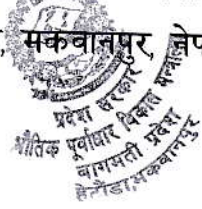 , मकवानपुर, नेप
प्रदेश सरकार
भौतिक पूर्वाधार विकास मन्त्रा
बागमती प्रदेश
हेटौंडा,मकवानपुर